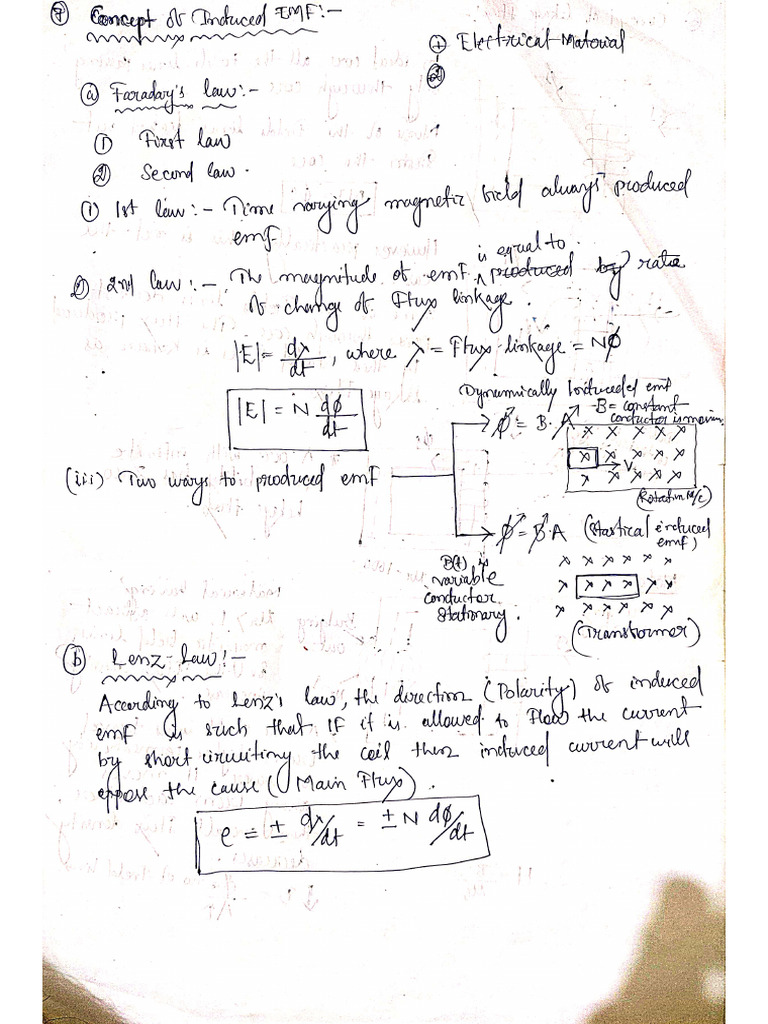 ⑦ Concept of Induced EMF:-
① Electrical Material
②
ⓐ Faraday's law:-
① First law
② Second law.
① 1st law:- Time varying magnetic field always produced
emf
is equal to
② 2nd law:- The magnitude of emf ^ produced by rate
of change of Flux linkage.
|E| = dλ/dt, where λ = Flux-linkage = NΦ
|E| = N dΦ/dt
Dynamically induced emf
Φ = B·A
B = constant
conductor is moving
x x x x x
x x x x x
V
x x x x
(Rotation M/c)
(iii) Two ways to produced emf
Φ = B·A (Stastical induced
emf)
B(t) is
variable
conductor
stationary.
x x x x x x
x x x x x x
x x x x x x
(Transformer)
ⓑ Lenz Law:-
According to Lenz's law, the direction (Polarity) of induced
emf is such that if it is allowed to flow the current
by short circuiting the coil then induced current will
oppose the cause (Main Flux).
e = ± dλ/dt = ± N dΦ/dt